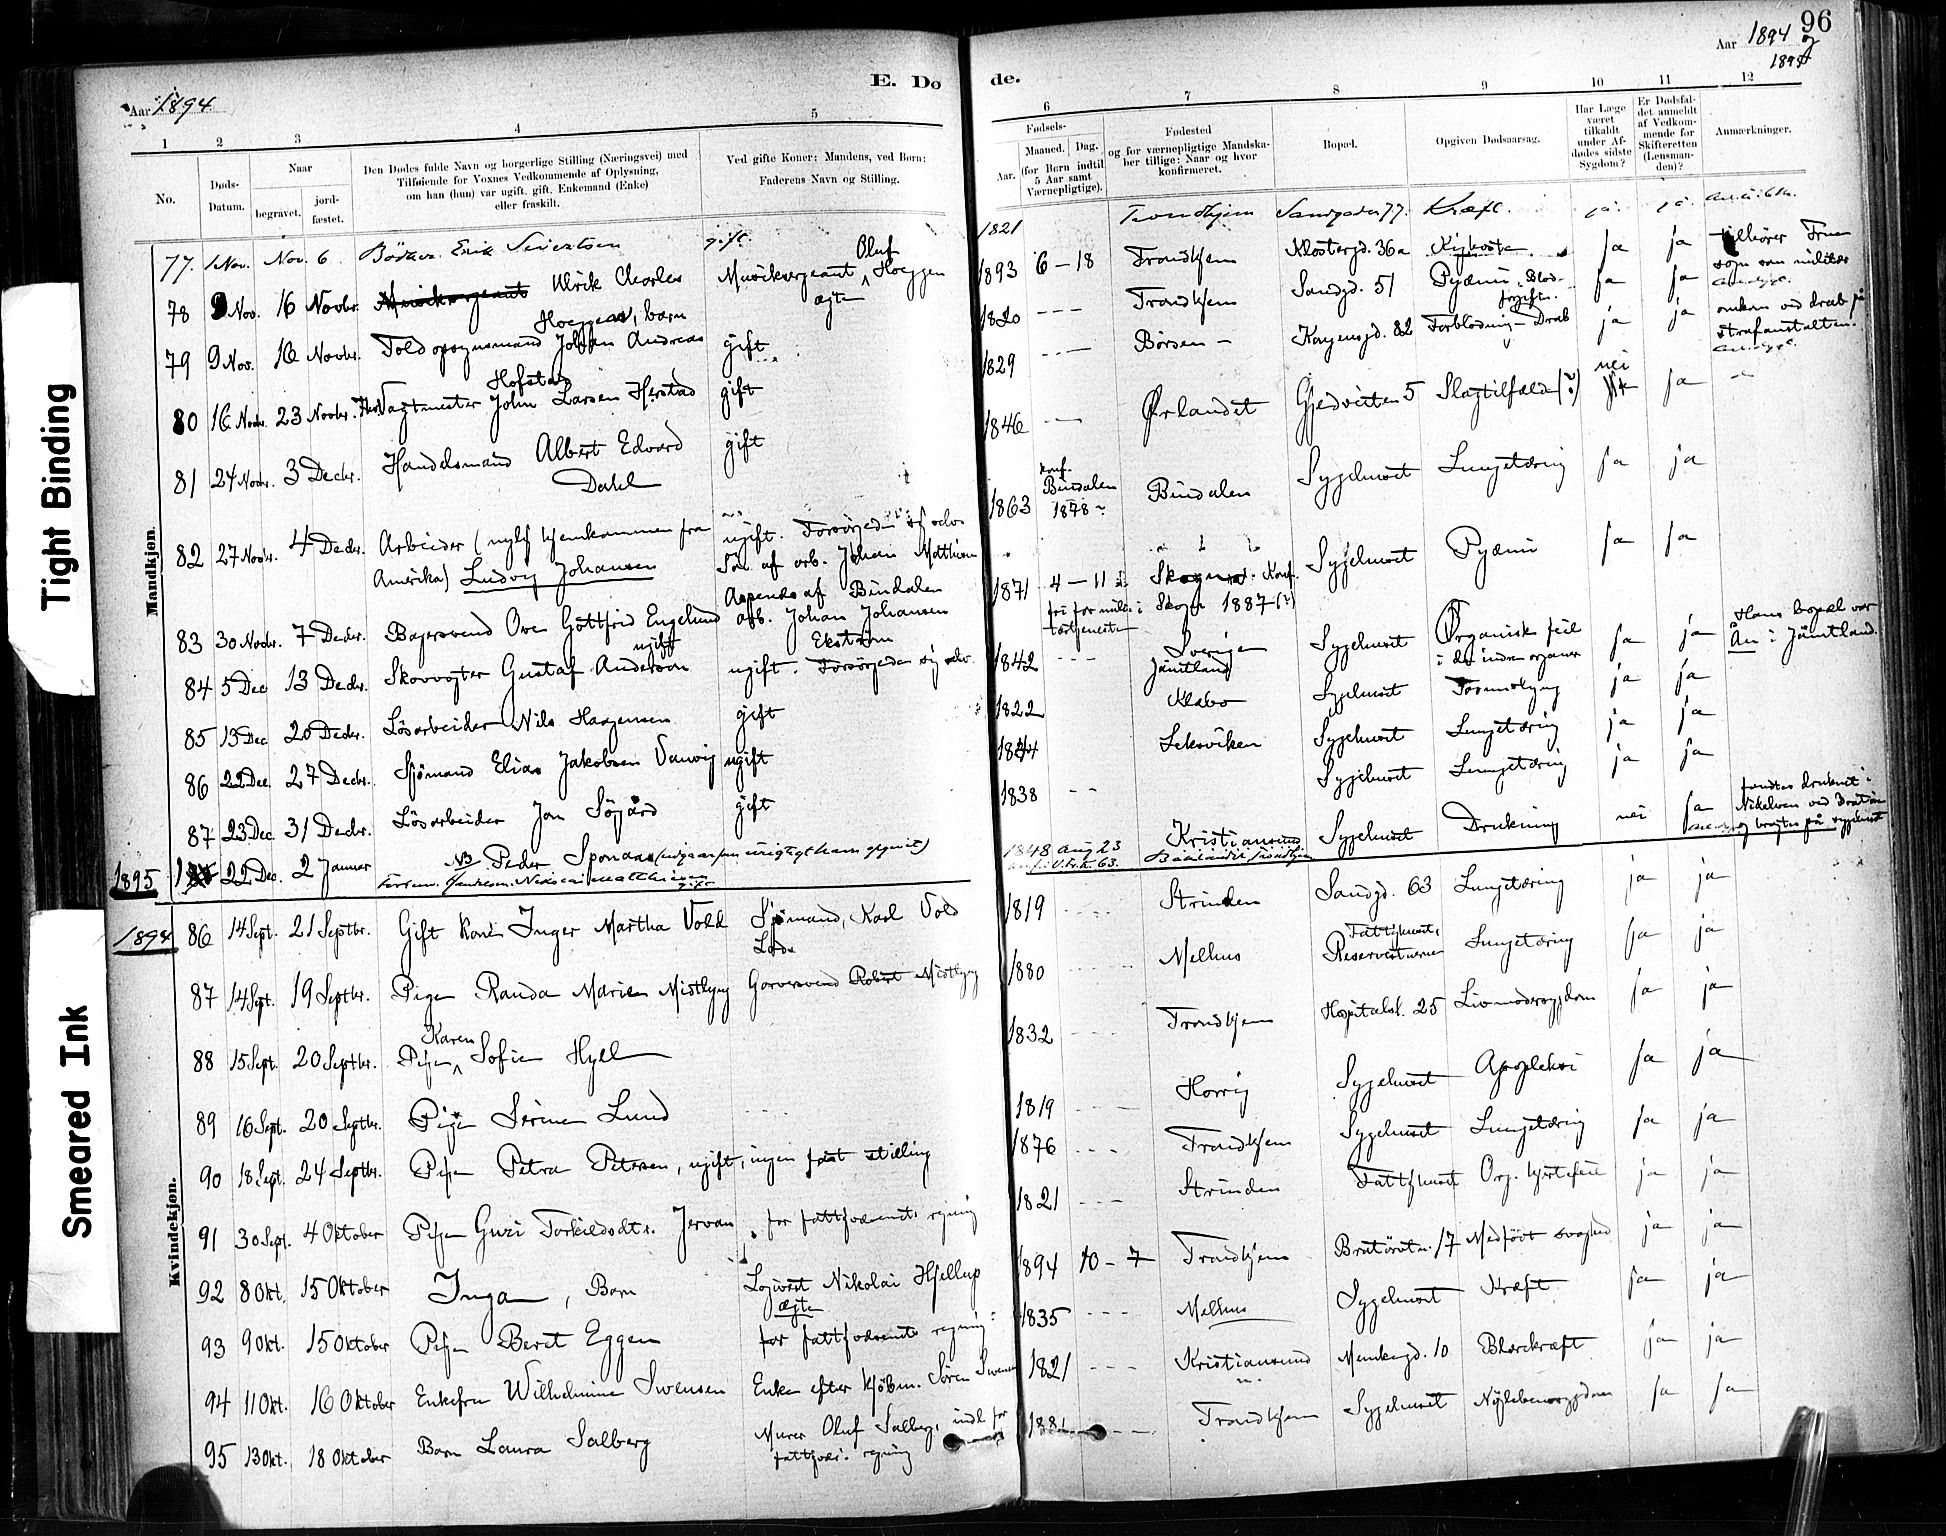 96
Aar 1894 og
1895
Aar 1894.
E. Dø de.
1 2 3 4 5 6 7 8 9 10 11 12
No.
Døds-Datum.
Naar
begravet.
jord-fæstet.
Den Dødes fulde Navn og borgerlige Stilling (Næringsvei) med
Tilføiende for Voxnes Vedkommende af Oplysning,
om han (hun) var ugift, gift, Enkemand (Enke)
eller fraskilt.
Ved gifte Koner: Mandens, ved Børn:
Faderens Navn og Stilling.
Fødsels-
Aar.
Maaned. Dag.
(for Børn indtil
5 Aar samt
Værnepligtige).
Fødested
og for værnepligtige Mandska-
ber tillige: Naar og hvor
konfirmeret.
Bopæl.
Opgiven Dødsaarsag.
Har Læge
været
tilkaldt
under Af-
dødes sidste
Sygdom?
Er Dødsfal-
det anmeldt
af Vedkom-
mende for
Skifteretten
(Lensman-
den)?
Anmærkninger.
Mandkjøn.
77. 1 Nov. Nov. 6 Bödker Erik Sivertsen gift. 1821 Trondhjem 77. Kræft. ja. ja.
78 9 Nov. 16 Novbr. Ulrik Charles Hoeggen, barn Musiksergeant Oluf Hoeggen ægte 1893 6 - 18 Trondhjem Klostergd. 36a Kighoste ja ja tilhører Frue sogn som militær
79 9 Nov. 16 Novbr. Toldopsynsmand Johan Andreas Hofstad gift 1820 - - - Trondhjem Sandgd. 51 Pyæmi, Blodforgiftn. ja ja
80 16 Novbr. 23 Novbr. Vagtmester John Larsen Herstad gift 1829 Børsen - 82 Forblødning - Drab ja ja omkom ved drab på strafanstalten.
81 24 Novbr. 3 Decbr. Handelsmand Albert Edvard Dahl gift 1846 Ørlandet Gjedvetten 5 Slagtilfælde (?) nei ja
82 27 Novbr. 4 Decbr. Arbeider (nylig hjemkommen fra Amerika) Ludvig Johansen ugift. Forsørgede sig selv. Søn af arb. Johan Matthisen Aspenes af Bindalen 1863 konf. Bindalen 1878 Bindalen Sygehuset Lungetæring ja ja
83 30 Novbr. 7 Decbr. Bagersvend Ove Gottfrid Engelund ugift arb. Johan Johansen Ekstrøm 1871 4 - 11 Skogn. Konf. Skogn 1887 (?) Sygehuset Pyæmi ja ja
84 5 Dec 13 Decbr. Skovvogter Gustaf Anderson ugift. Forsørgede sig selv. 1842 - - - Sverige Jämtland Sygehuset Organisk feil i de indre organer ja ja Hans bopæl var Ån i Jämtland.
85 13 Dec 20 Decbr. Løsarbeider Nils Haagensen gift 1822 Klæbo Sygehuset ja ja
86 22 Dec. 27 Decbr. Sjømand Elias Jakobsen Vanvig ugift 1844 Leksviken Sygehuset Lungetæring ja ja
87 23 Dec 31 Decbr. Løsarbeider Jon Søgård gift 1838 - - Sygehuset Lungetæring ja ja
1895 1 22 Dec. 2 Januar NB Peder 1848 Aug 23 Kristiansund Sygehuset Drukning nei ja fandtes druknet i Nidelven ved Bratøren og bragtes på sygehuset
Kvindekjøn.
1894 86 14 Sept. 21 Septbr. Gift kone Inger Martha Vold Sjømand, Karl Vold 1819 Strinden Sandgd. 63 Lungetæring ja ja
87 14 Sept. 19 Septbr. Pige Randa Marie Mistbjerg Garversvend Robert Mistbjerg 1880 Melhus Fattighuset, Lungetæring ja ja
88 15 Sept. 20 Septbr. Pige Karen Sofie Hyll 1832 - - - Trondhjem Hospitalsl. 25 Livmodersygdom ja ja
89 16 Sept. 20 Septbr. Pige Serine Lund 1819 - - - Horrig Sygehuset Apoplekxi ja ja
90 18 Sept. 24 Septbr. Pige Petra Petersen, ugift, ingen fast stilling 1876 - - - Trondhjem Sygehuset Lungetæring ja ja
91 30 Sept. 4 Oktober Pige Guri Torkildsdtr. Jervan, for fattigvæsenets regning 1821 - - - Strinden Fattighuset Org. hjertefeil ja ja
92 8 Okt. 15 Oktober Inga, Barn Nikolai Hjellup ægte 1894 10 - 7 Trondhjem 17 Medfødt svaghed ja ja
93 9 Okt. 15 Oktober Pige Berit Eggen for fattigvæsenets regning 1835 - - - Melhus Sygehuset Kræft ja ja
94 11 Okt. 16 Oktober Enkefru Wilhelmine Swensen Enke efter kjøbm. Søren Swensen 1821 - - - Kristiansund Munkegd. 10 Blærekræft ja ja
95 13 Okt. 18 Oktober Barn Laura Salberg Murer Oluf Salberg, indl. for fattigvæs. regning 1881 - - - Trondhjem Sygehuset ja ja
Tight Binding
Smeared Ink